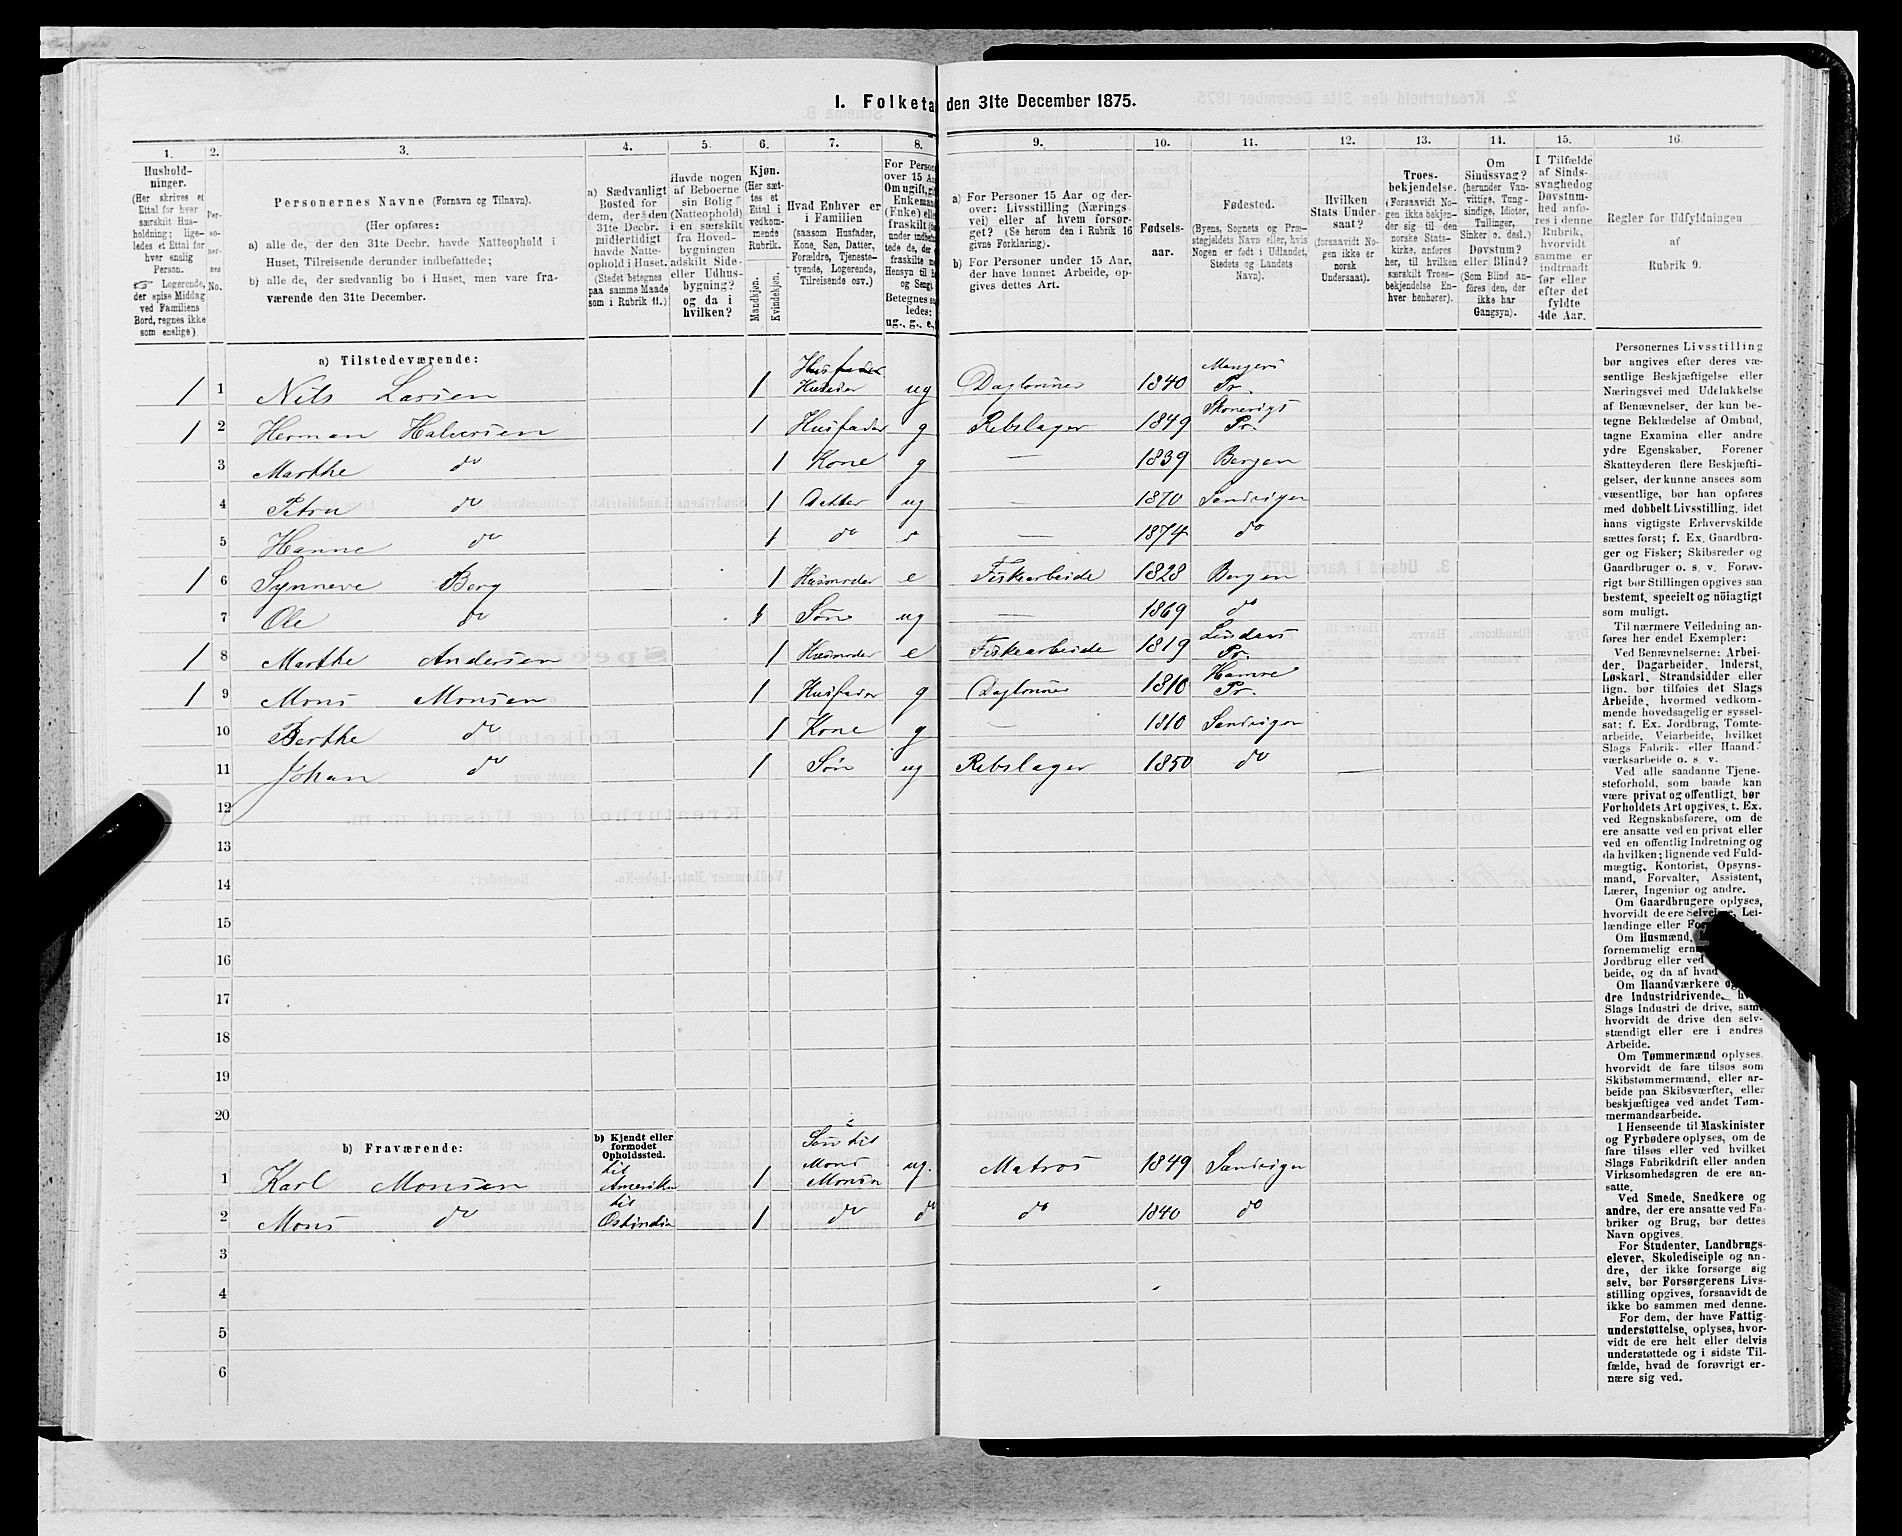 I. Folketa den 31te December 1875.
1. 2. 3. 4. 5. 6. 7. 8. 9. 10. 11. 12. 13. 14. 15. 16.
Hushold-
ninger.
(Her skrives et
Ettal for hver
særskilt Hus-
holdning; lige-
ledes et Ettal for
hver enslig
Person.
☞ Logerende,
der spise Middag
ved Familiens
Bord, regnes ikke
som enslige)
Per-
so-
ner-
nes
No.
Personernes Navne (Fornavn og Tilnavn).
(Her opføres:
a) alle de, der den 31te Decbr. havde Natteophold i
Huset, Tilreisende derunder indbefattede;
b) alle de, der sædvanlig bo i Huset, men vare fra-
værende den 31te December.
a) Sædvanligt
Bosted for
dem, der den
31te Decbr.
midlertidigt
havde Natte-
ophold i Huset.
(Stedet betegnes
paa samme Maade
som i Rubrik 11.)
Havde nogen
af Beboerne
sin Bolig
(Natteophold)
i en særskilt
fra Hoved-
bygningen
adskilt Side-
eller Udhus-
bygning?
og da i
hvilken?
Kjøn.
(Her sæt-
tes et
Ettal i
vedkom-
mende
Rubrik.
Mandkjøn.
Kvindekjøn.
Hvad Enhver er
i Familien
(saasom Husfader,
Kone, Søn, Datter,
Forældre, Tjeneste-
tyende, Logerende,
Tilreisende osv.)
For Person
over 15 Aa
Om ugift, gif
Enkemand
(Enke) elle
fraskilt
under indbefat
tede de, der
fraskilte m
Hensyn til b
og Seng).
Betegnes saa
ledes:
ug., g., e.,
a) For Personer 15 Aar og der-
over: Livsstilling (Nærings-
vei) eller af hvem forsør-
get? (Se herom den i Rubrik 16
givne Forklaring).
b) For Personer under 15 Aar,
der have lønnet Arbeide, op-
gives dettes Art.
Fødsels-
aar.
Fødested.
(Byens, Sognets og Præ-
stegjeldets Navn eller, hvis
Nogen er født i Udlandet,
Stedets og Landets
Navn).
Hvilken
Stats Under-
saat?
(forsaavidt No-
gen ikke er
norsk
Undersaat).
Troes-
bekjendelse.
(Forsaavidt No-
gen ikke bekjen-
der sig til den
norske Stats-
kirke, anføres
her, til hvilken
særskilt Troes-
bekjendelse En-
hver henhører).
Om
Sindssvag?
(herunder Van-
vittige, Tung-
sindige, Idioter,
Tullinger,
Sinker o. desl.)
Døvstum?
eller Blind?
(Som Blind an-
føres den, der
ikke har
Gangsyn).
I Tilfælde
af Sinds-
svaghed og
Døvstum-
hed anfø-
res i denne
Rubrik,
hvorvidt
samme er
indtraadt
før eller
efter det
fyldte
4de Aar.
Regler for Udfyldningen
af
Rubrik 9.
a) Tilstedeværende:
1 1 Nils Larsen 1 Husfader Husfader ug Daglønner 1840 Mangers Pr.
1 2 Herman Halversen 1 Husfader g Rebslager 1849 Skonevigs Pr.
3 Marthe do 1 Kone g — 1839 Bergen
4 Petra do 1 Datter ug — 1870 Sandvigen
5 Hanne do 1 do — 1874 do
1 6 Synneve Berg 1 Husmoder e Fiskearbeide 1828 Bergen
7 Ole do 1 Søn ug — 1869 do
1 8 Marthe Andersen 1 Husmoder e Fiskearbeide 1819 Lindaas Pr.
1 9 Mons Monsen 1 Husfader g Daglønner 1810 Hamre Pr.
10 Berthe do 1 Kone g — 1810 Sandvigen
11 Johan do 1 Søn ug Rebslager 1850 do —
12
13
14
15
16
17
18
19
20
b) Fraværende:
b) Kjendt eller
formodet
Opholdssted.
1 Karl Monsen til Amerika 1 Søn til Mons Monsen ug. Matros 1849 Sandvigen
2 Mons do til Ostindien 1 do do do 1840 do
3
4
5
6
Personernes Livsstilling
bør angives efter deres væ-
sentlige Beskjæftigelse eller
Næringsvei med Udelukkelse
af Benævnelser, der kun be-
tegne Beklædelse af Ombud,
tagne Examina eller andre
ydre Egenskaber. Forener
Skatteyderen flere Beskjæfti-
gelser, der kunne ansees som
væsentlige, bør han opføres
med dobbelt Livsstilling, idet
hans vigtigste Erhvervskilde
sættes først; f. Ex. Gaardbru-
ger og Fisker; Skibsreder og
Gaardbruger o. s. v. Forøv-
rigt bør Stillingen opgives saa
bestemt, specielt og nöiagtigt
som muligt.
Til nærmere Veiledning an-
føres her endel Exempler:
Ved Benævnelserne: Arbei-
der, Dagarbeider, Inderst,
Løskarl, Strandsidder eller
lign. bør tilføies det Slags
Arbeide, hvormed vedkom-
mende hovedsagelig er syssel-
sat; f. Ex. Jordbrug, Tomte-
arbeide, Veiarbeide, hvilket
Slags Fabrik- eller Haand-
værksarbeide o. s. v.
Ved alle saadanne Tjene-
steforhold, som baade kan
være privat og offentligt, bør
Forholdets Art opgives, t. Ex.
ved Regnskabsførere, om de
ere ansatte ved en privat eller
ved en offentlig Indretning og
da hvilken; lignende ved Fuld-
mægtig, Kontorist, Opsyns-
mand, Forvalter, Assistent,
Lærer, Ingeniør og andre.
Om Gaardbrugere oplyses,
hvorvidt de ere Selveiere, Lei-
lændinge eller
Om Husmænd,
fornemmelig
Jordbrug eller ved
beide, og da af hvad
Om Haandværkere
dre Industridrivende,
Slags Industri de drive, samt
hvorvidt de drive den selv-
stændigt eller ere i andres
Arbeide.
Om Tømmermænd oplyses,
hvorvidt de fare tilsøs som
Skibstømmermænd, eller ar-
beide paa Skibsværfter, eller
beskjæftiges ved andet Tøm-
mermandsarbeide.
I Henseende til Maskinister
og Fyrbødere oplyses, om de
fare tilsøs eller ved hvilket
Slags Fabrikdrift eller anden
Virksomhedsgren de ere an-
satte.
Ved Smede, Snedkere og
andre, der ere ansatte ved Fa-
briker og Brug, bør dettes
Navn opgives.
For Studenter, Landbrugs-
elever, Skoledisciple og an-
dre, der ikke forsørge sig
selv, bør Forsørgerens Livs-
stilling opgives, forsaavidt de
ikke bo sammen med denne.
For dem, der have Fattig-
understøttelse, oplyses, hvor-
vidt de ere helt eller delvis
understøttede og i sidste Til-
fælde, hvad de forøvrigt er-
nære sig ved.